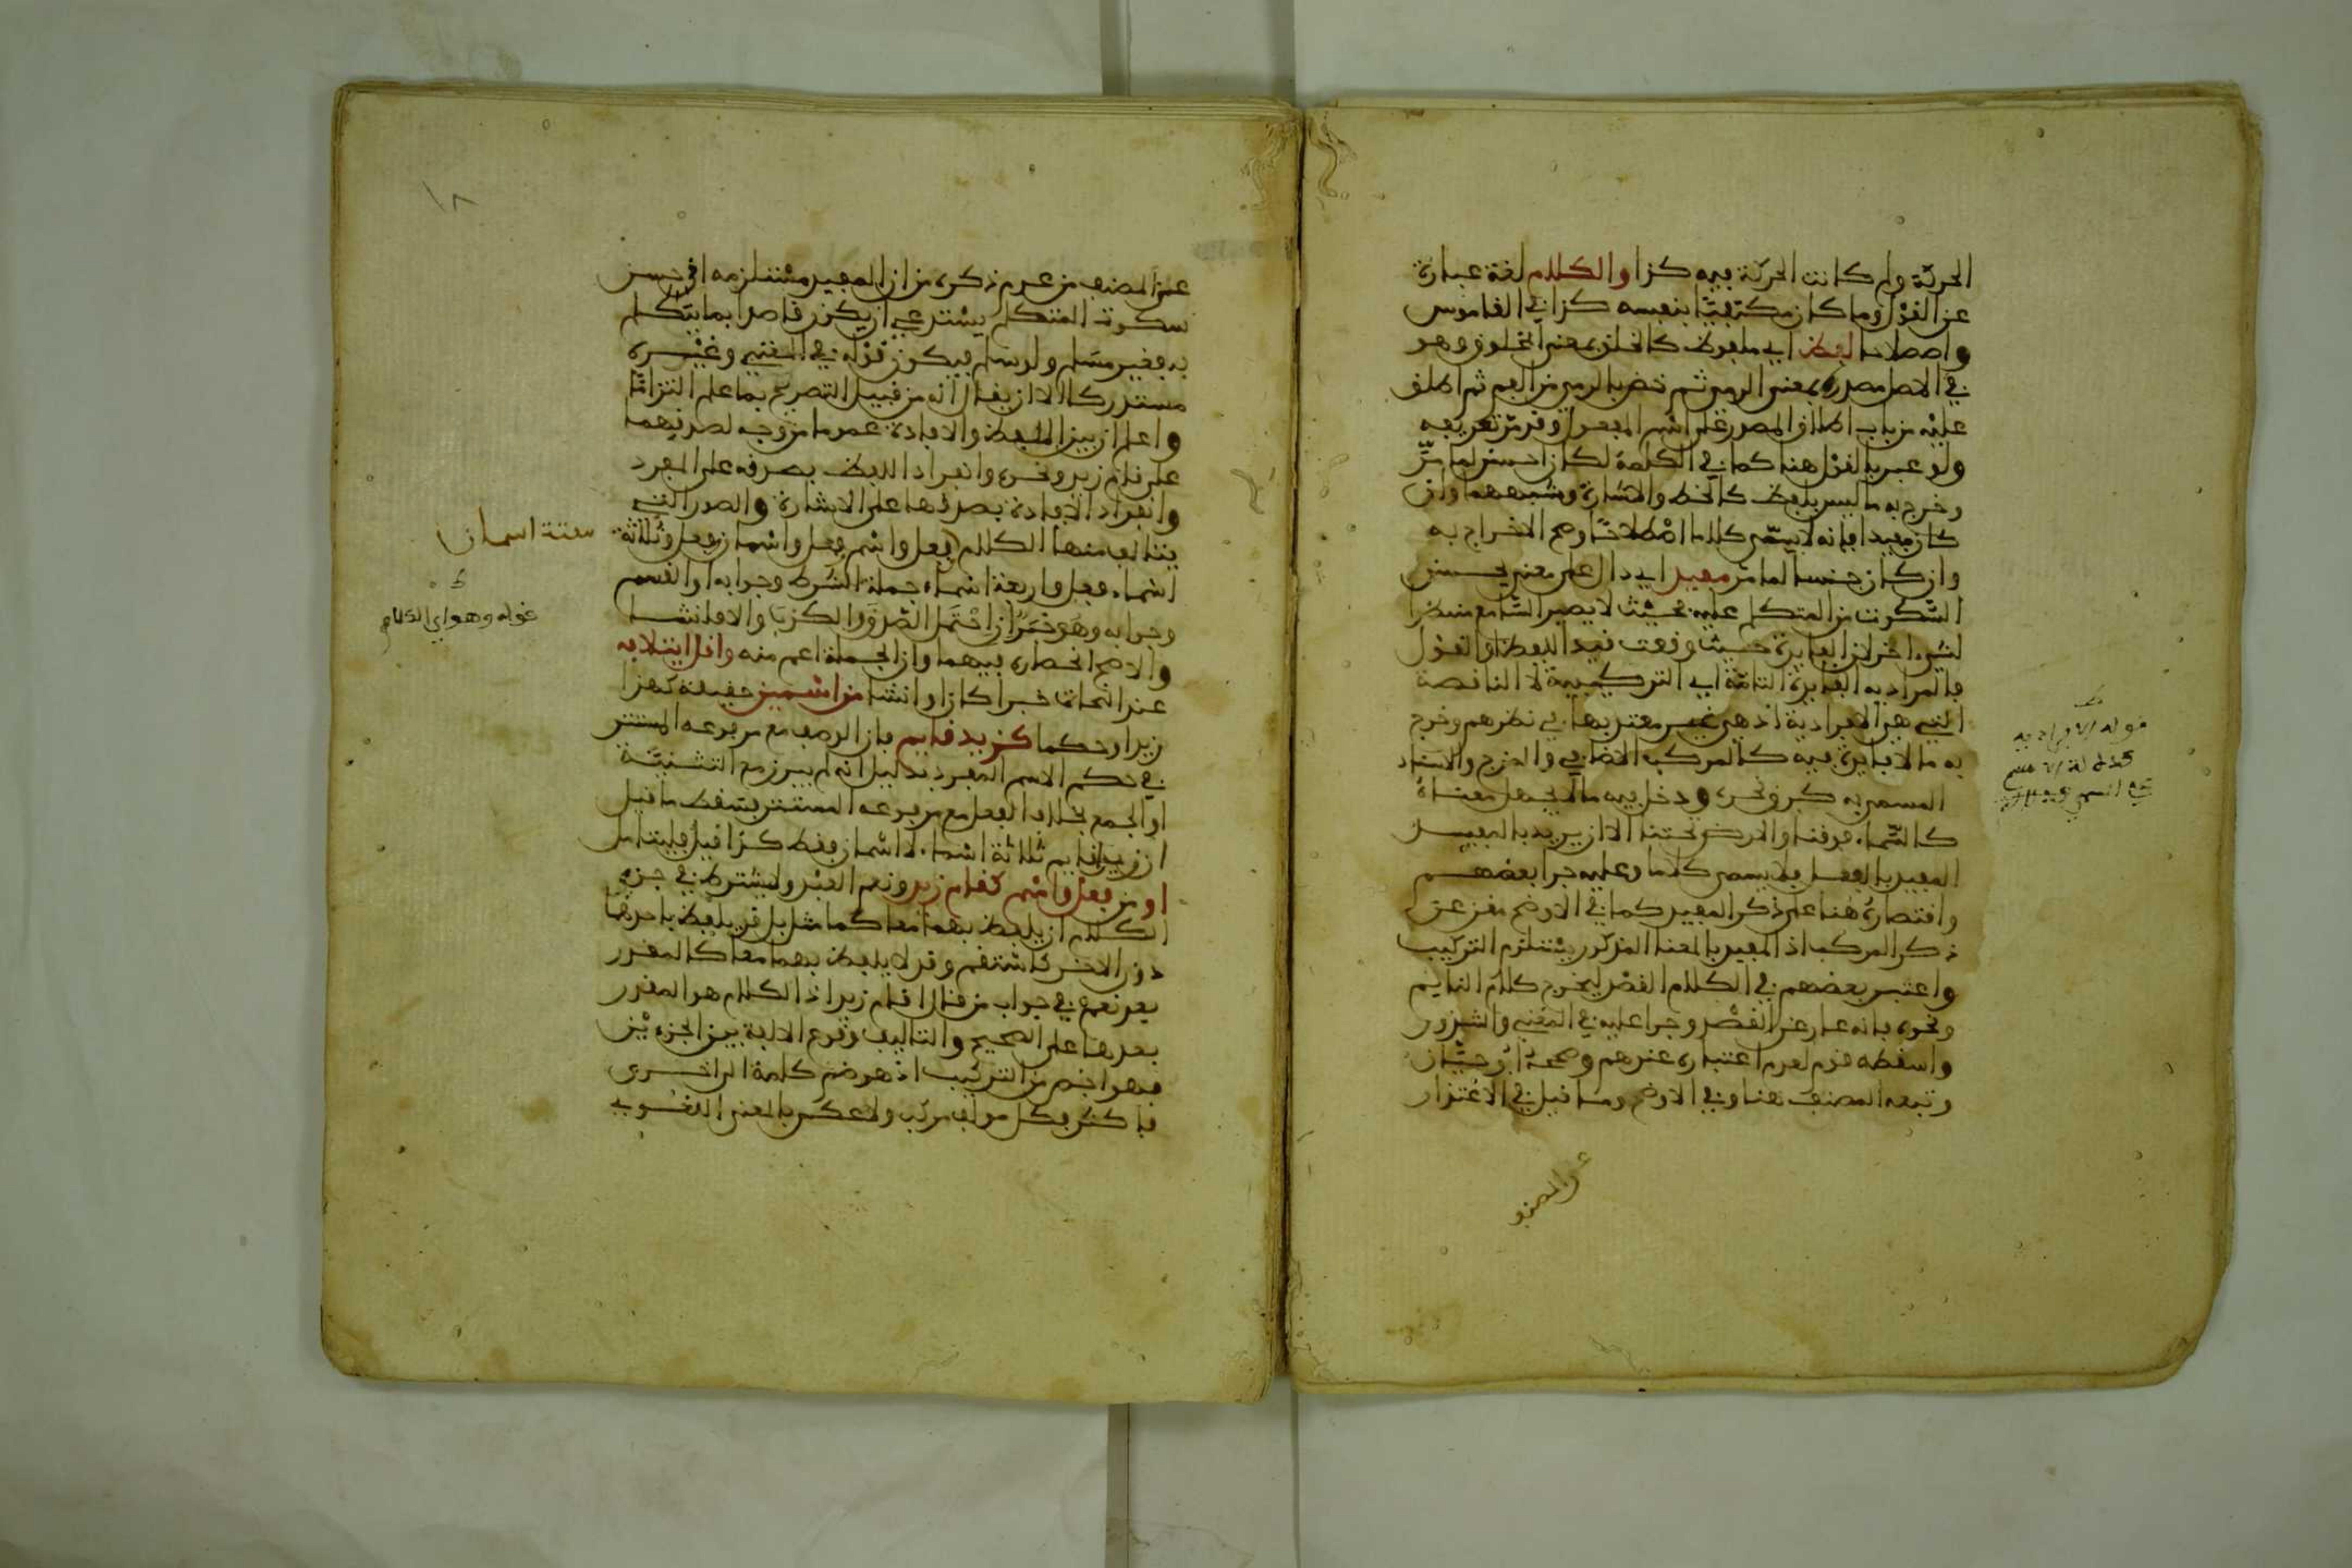 الحرفية وان كانت الحرفية فيه كذا والكلام لغة عبارة
عن القول وما كان مكتفيا بنفسه كذا في القاموس
واصطلاحا لفظ اي ملفوظ كالخلق بمعنى المخلوق وهو
في الاصل مصدر بمعنى الرمي ثم خص بالرمي من الفم ثم اطلق
عليه من باب اطلاق المصدر على اسم المفعول وقد مر تعريفه
ولو عبر بالقول هنا كما في الكلمة لكان احسن لما مر
وخرج به ما ليس بلفظ كالخط والاشارة وشبههما وان
كان مفيدا فانه لا يسمى كلاما اصطلاحا وصح الاخراج به
وان كان جنسا لما مر مفيد اي دال على معنى يحسن
السكوت من المتكلم عليه بحيث لا يصير السامع منتظرا
لشيء اخر لان الفايدة حيث وقعت قيد اللفظ او القول
فالمراد به الفايدة التامة اي التركيبية لا الناقصة
التي هي الافرادية اذ هي غير معتد بها في نظرهم وخرج
به ما لا فايدة فيه كالمركب الاضافي والمزجي والاسناد
المسمى به كبرق نحره ودخل فيه ما لا يجهل معناه
كالسماء فوقنا والارض تحتنا الا ان يريد بالمفيد
المفيد بالفعل فلا يسمى كلاما وعليه جرا بعضهم
واقتصاره هنا على ذكر المفيد كما في الاوضح مغن عن
ذكر المركب اذ المفيد بالمعنى المذكور يستلزم التركيب
واعتبر بعضهم في الكلام القصد ليخرج كلام النايم
ونحوه فانه عار عن القصد وجرا عليه في المغني والشذور
واسقطه قوم لعدم اعتباره عندهم وصححه ابو حيان
وتبعه المصنف هنا وفي الاوضح وما قيل في الاعتذار
عن المصنف
قوله الافرادية
١٨
عن المصنف من عدم ذكره من ان المفيد مستلزمه اذ حسن
سكوت المتكلم يستدعي ان يكون قاصدا بما يتكلم
به فغير مسلم ولو سلم فيكون قوله في المغني وغيره
مستدركا الا ان يقال انه من قبيل التصريح بما علم التزاما
واعلم ان بين اللفظ والافادة عموما من وجه لصدقهما
على قام زيد ونحوه وانفراد اللفظ بصدقه على المفرد
وانفراد الافادة بصدقها على الاشارة والصور التي
يتالف منها الكلام فعل واسم فعل واسمان فعل وثلاثة
اسماء فعل واربعة اسماء جملة الشرط وجوابه او القسم
وجوابه وهو خبر ان احتمل الصدق والكذب والا فانشا
والاصح انحصاره فيهما وان الجملة اعم منه واقل ايتلافه
عند النحاة خبرا كان او انشا من اسمين حقيقة كهذا
زيد او حكما كزيد قايم فان الوصف مع مرفوعه المستتر
في حكم الاسم المفرد بدليل انه لم يبرز مع التثنية
او الجمع بخلاف الفعل مع مرفوعه المستتر فسقط ما قيل
ان زيد قايم ثلاثة اسماء لا اسمان فقط كذا قيل فليتامل
او من فعل واسم كقام زيد ونعم العبد ولا يشترط في جزءي
الكلام ان يلفظ بهما معا كما مثل بل قد يلفظ باحدهما
دون الاخر كاستقم وقد لا يلفظ بهما معا كالمقدر
بعد نعم في جواب من قال اقام زيد اذ الكلام هو المقدر
بعدها على الصحيح والتاليف وقوع الالفة بين الجزءين
فهو اخص من التركيب اذ هو ضم كلمة الى اخرى
فاكثر فكل مولف مركب ولا عكس بالمعنى اللغوي
ستة اسمان
قوله وهو اي الكلام